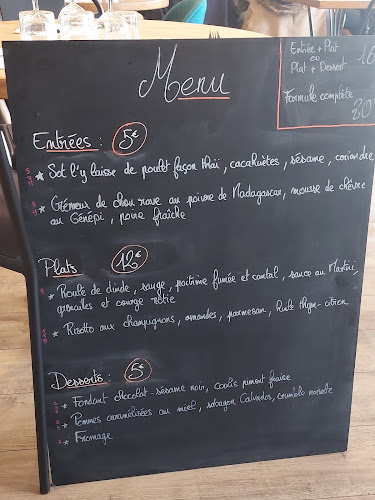 Menu
Entrée + Plat
ou
Plat + Dessert 16
Formule complète
20
Entrées : 5€
* Sot l'y laisse de poulet façon thaï, cacahuètes, sésame, coriandre
* Crémeux de chou rave au poivre de Madagascar, mousse de chèvre
au Génépi, poire fraîche
Plats 12€
* Roulé de dinde, sauge, poitrine fumée et cantal, sauce au Martini,
grenailles et courge rôtie
* Risotto aux champignons, amandes, parmesan, huile thym-citron
Desserts : 5€
* Fondant chocolat-sésame noir, coulis piment fraise
* Pommes caramélisées au miel, sabayon Calvados, crumble noisette
* Fromage